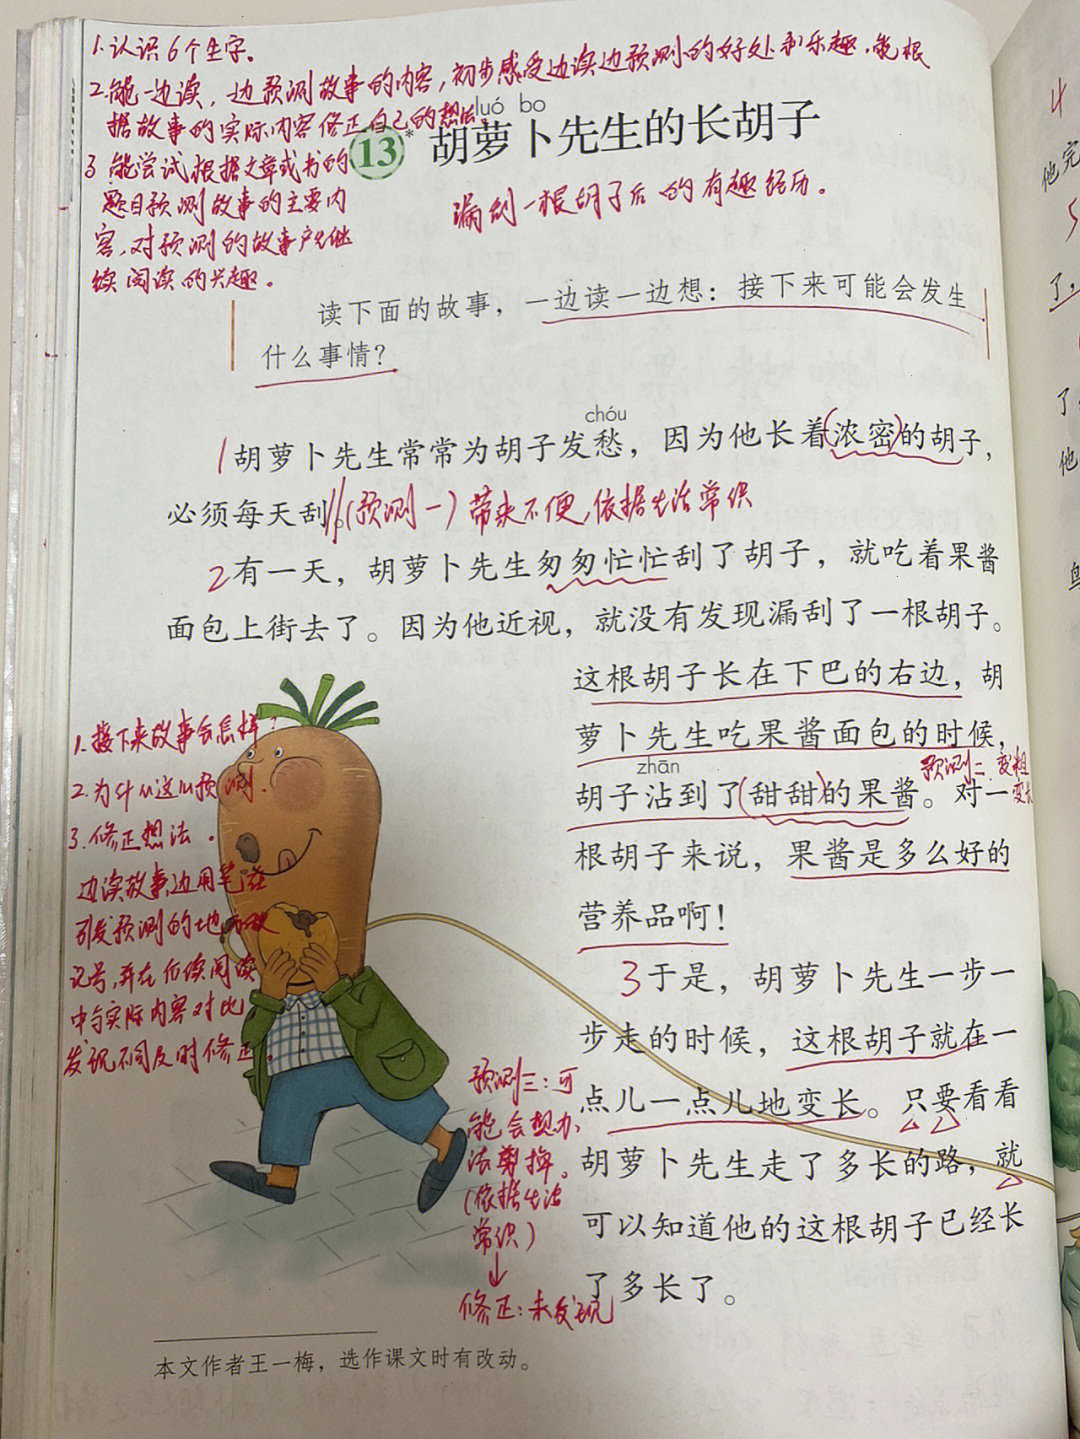 1.认识6个生字。
2.能一边读，一边预测故事的内容，初步感受边读边预测的好处和乐趣，能根
据故事的实际内容修正自己的想法。
3 能尝试根据文章或书的
题目预测故事的主要内
容，对预测的故事产生继
续阅读的兴趣。
luó bo
13* 胡萝卜先生的长胡子
漏刮一根胡子后的有趣经历。
读下面的故事，一边读一边想：接下来可能会发生
什么事情？
chóu
1 胡萝卜先生常常为胡子发愁，因为他长着(浓密)的胡子，
必须每天刮。(预测一)带来不便，依据生活常识
2 有一天，胡萝卜先生匆匆忙忙刮了胡子，就吃着果酱
面包上街去了。因为他近视，就没有发现漏刮了一根胡子。
这根胡子长在下巴的右边，胡
萝卜先生吃果酱面包的时候，
zhān
预测二：变粗
变长
胡子沾到了(甜甜)的果酱。对一
根胡子来说，果酱是多么好的
营养品啊！
3 于是，胡萝卜先生一步一
步走的时候，这根胡子就在一
点儿一点儿地变长。只要看看
胡萝卜先生走了多长的路，就
可以知道他的这根胡子已经长
了多长了。
1.接下来故事会怎样？
2.为什么这么预测．
3.修正想法．
边读故事边用笔在
引发预测的地方做
记号，并在后续阅读
中与实际内容对比，
发现不同及时修正．
预测三：可
能会想办
法剪掉。
(依据生活
常识)
↓
修正：未发现
本文作者王一梅，选作课文时有改动。
4
他完
5
了，
了
他